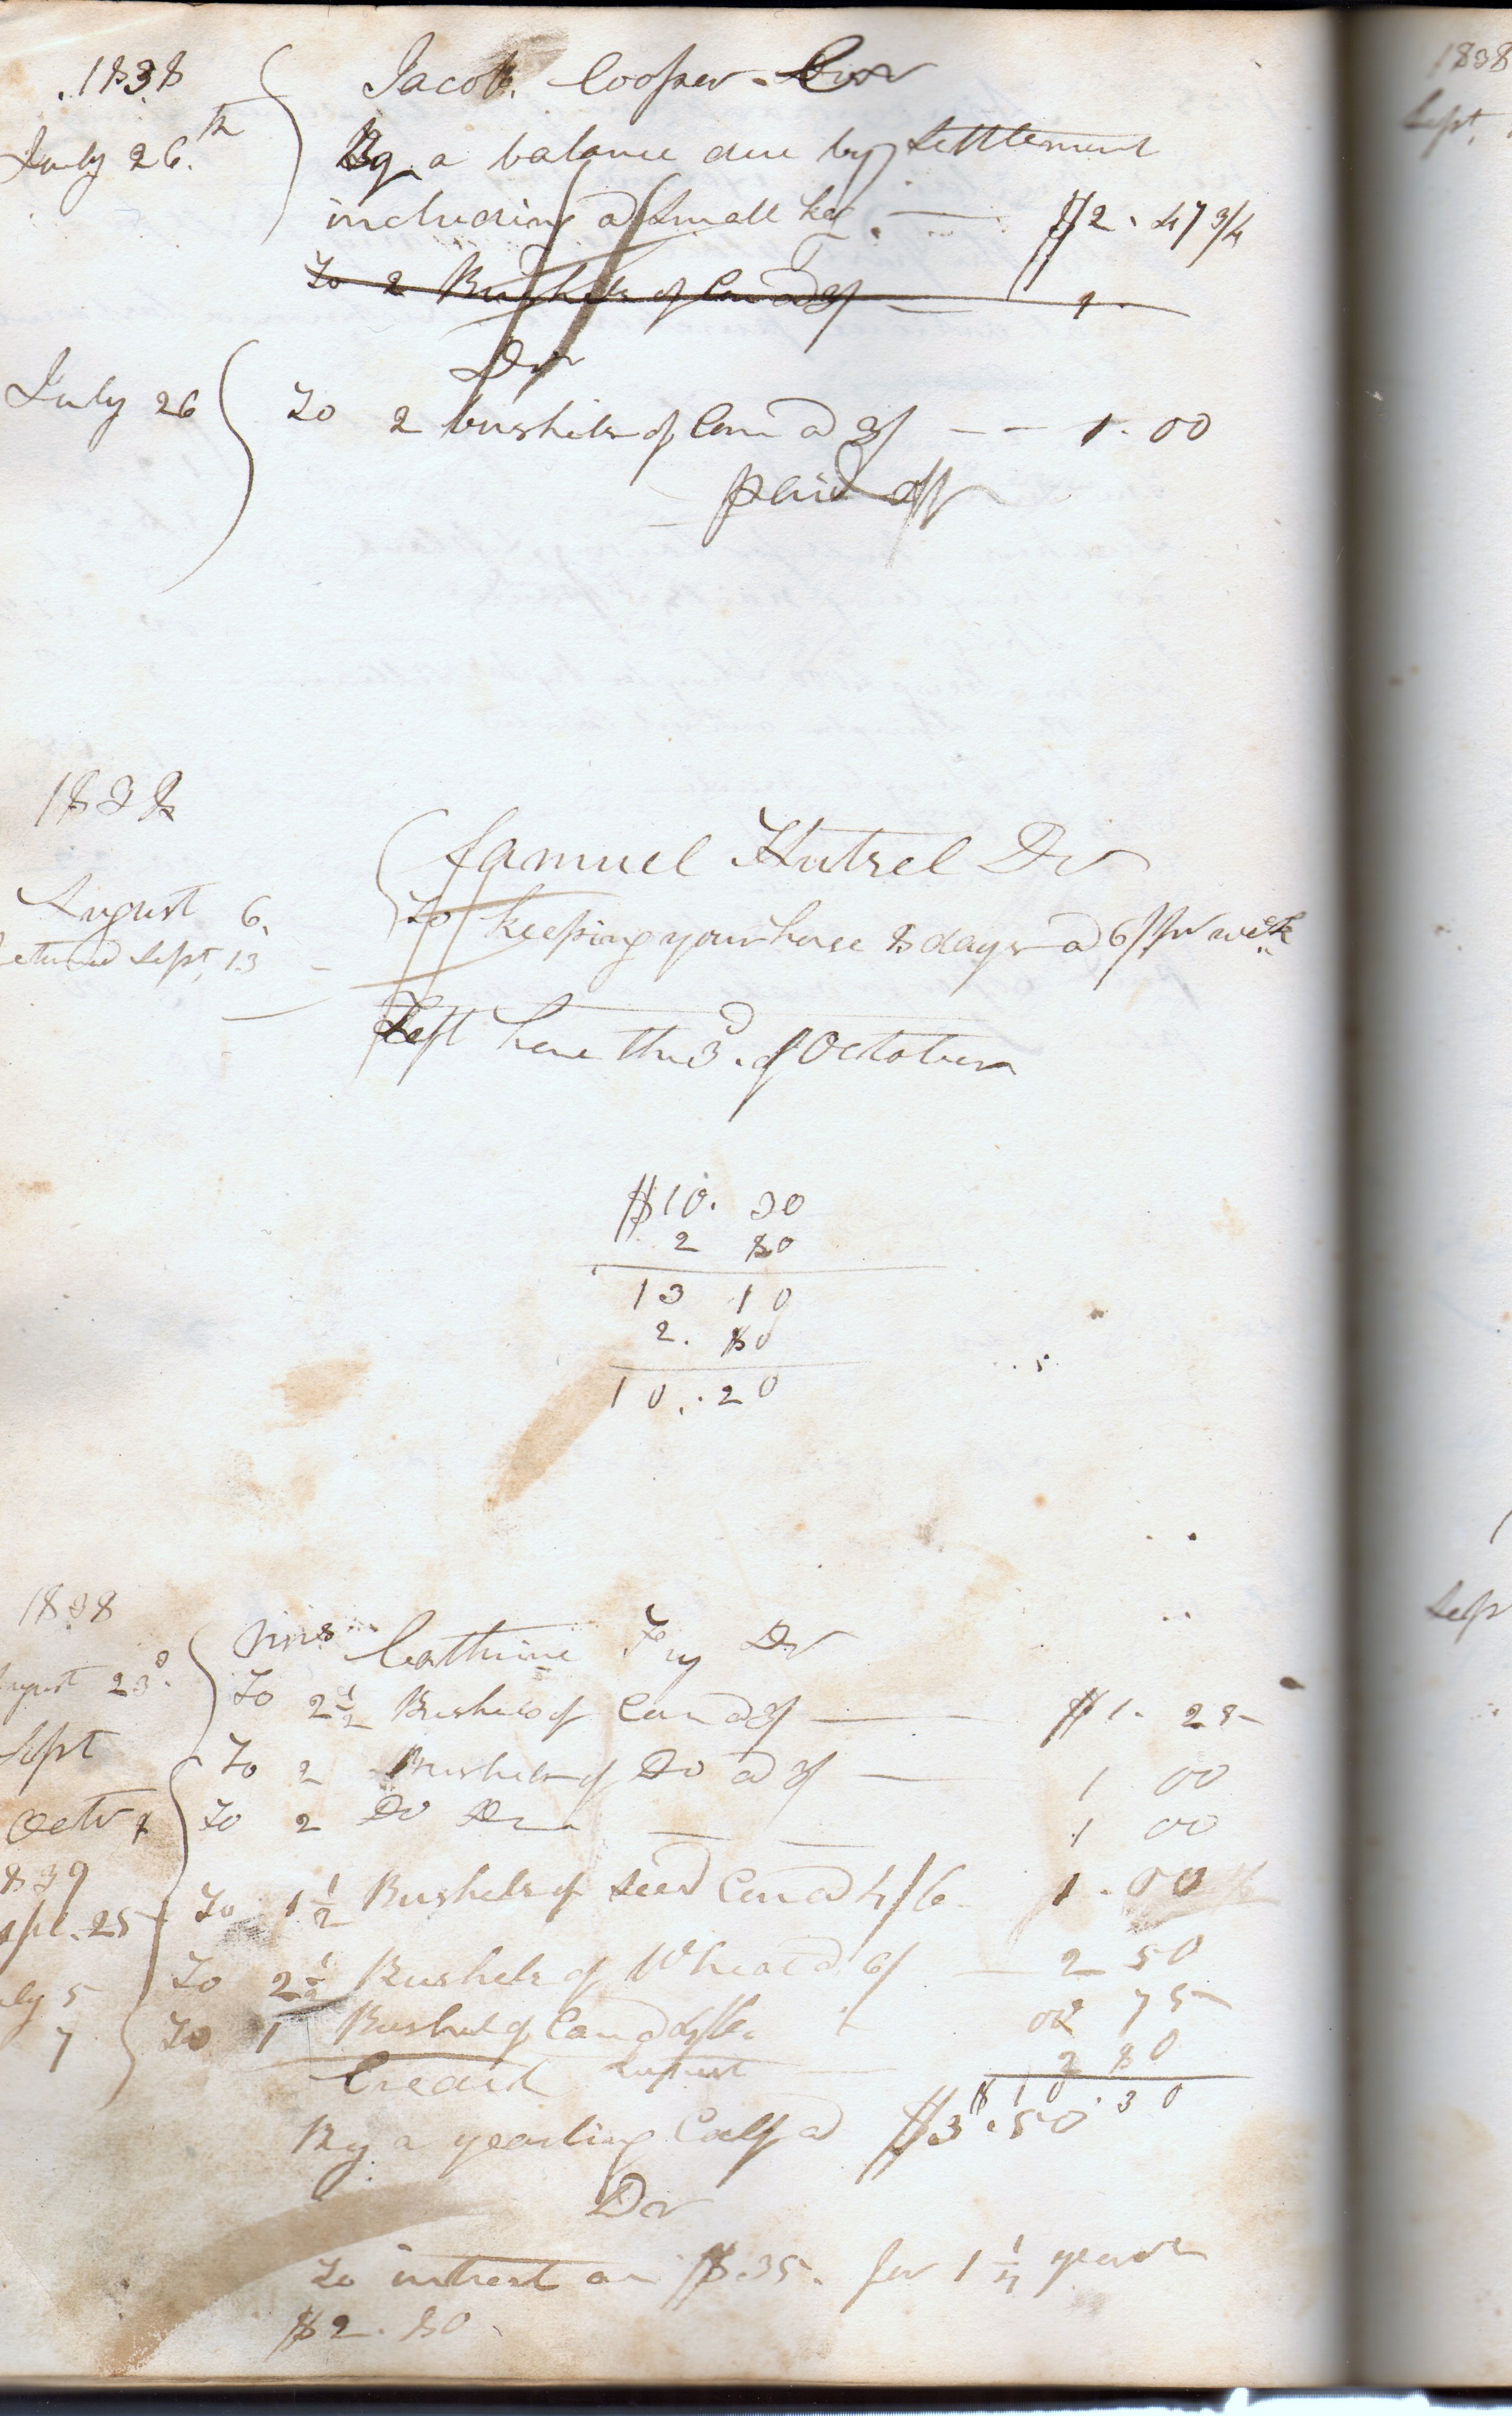 1838
Jacob Cooper Cr
July 26th
By a balance due by Settlement
including a Small keg. — $2. 47 3/4
To 2 Bushels of Corn a 3/ — 1.
Dr
July 26
To 2 bushels of Corn a 3/ -- 1. 00
paid off
1838
Samuel Hutzel Dr
August 6.
To keeping your horse 8 days a 6/ pr week
returned Sept. 13
Left here the 3d. of October
$10. 30
2 80
13 10
2. 80
10. 20
1838
Mrs Cathrine Fry Dr
August 23d.
To 2 1/2 Bushels of Corn a 3/ — $1. 25
Sept
To 2 Bushels of Do a 3/ — 1 00
Octr
To 2 Do Do — 1 00
1839
Apl. 25
To 1 1/2 Bushels of Seed Corn a 4/6 1. 00
July 5
To 2 1/2 Bushels of Wheat a 6/ — 2 50
7
To 1 Bushel of Corn a 4/6. 00 75
Credit 2 80
$10.30
By a yearling Calf a $3.50
Dr
To intrest on $35. for 1 1/4 years
$2. 80
1838
Sept.
Sep